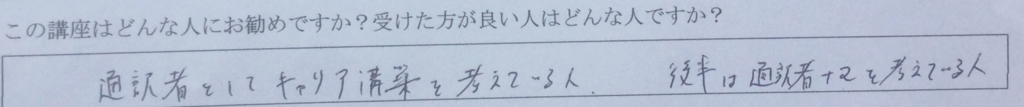 この講座はどんな人にお勧めですか？受けた方が良い人はどんな人ですか？
通訳者としてキャリア構築を考えている人. 後半は通訳者+αを考えている人